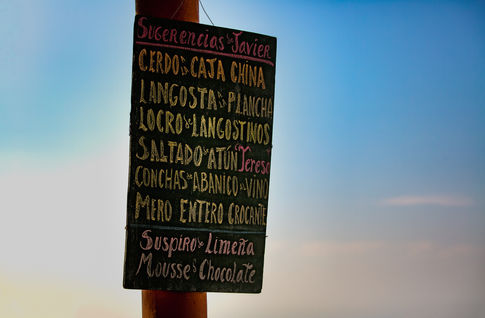 Sugerencias de Javier
CERDO en CAJA CHINA
LANGOSTA a la PLANCHA
LOCRO de LANGOSTINOS
SALTADO de ATÚN Teresa
CONCHAS de ABANICO al VINO
MERO ENTERO CROCANTE
SUSPIRO a la LIMEÑA
MOUSSE de CHOCOLATE